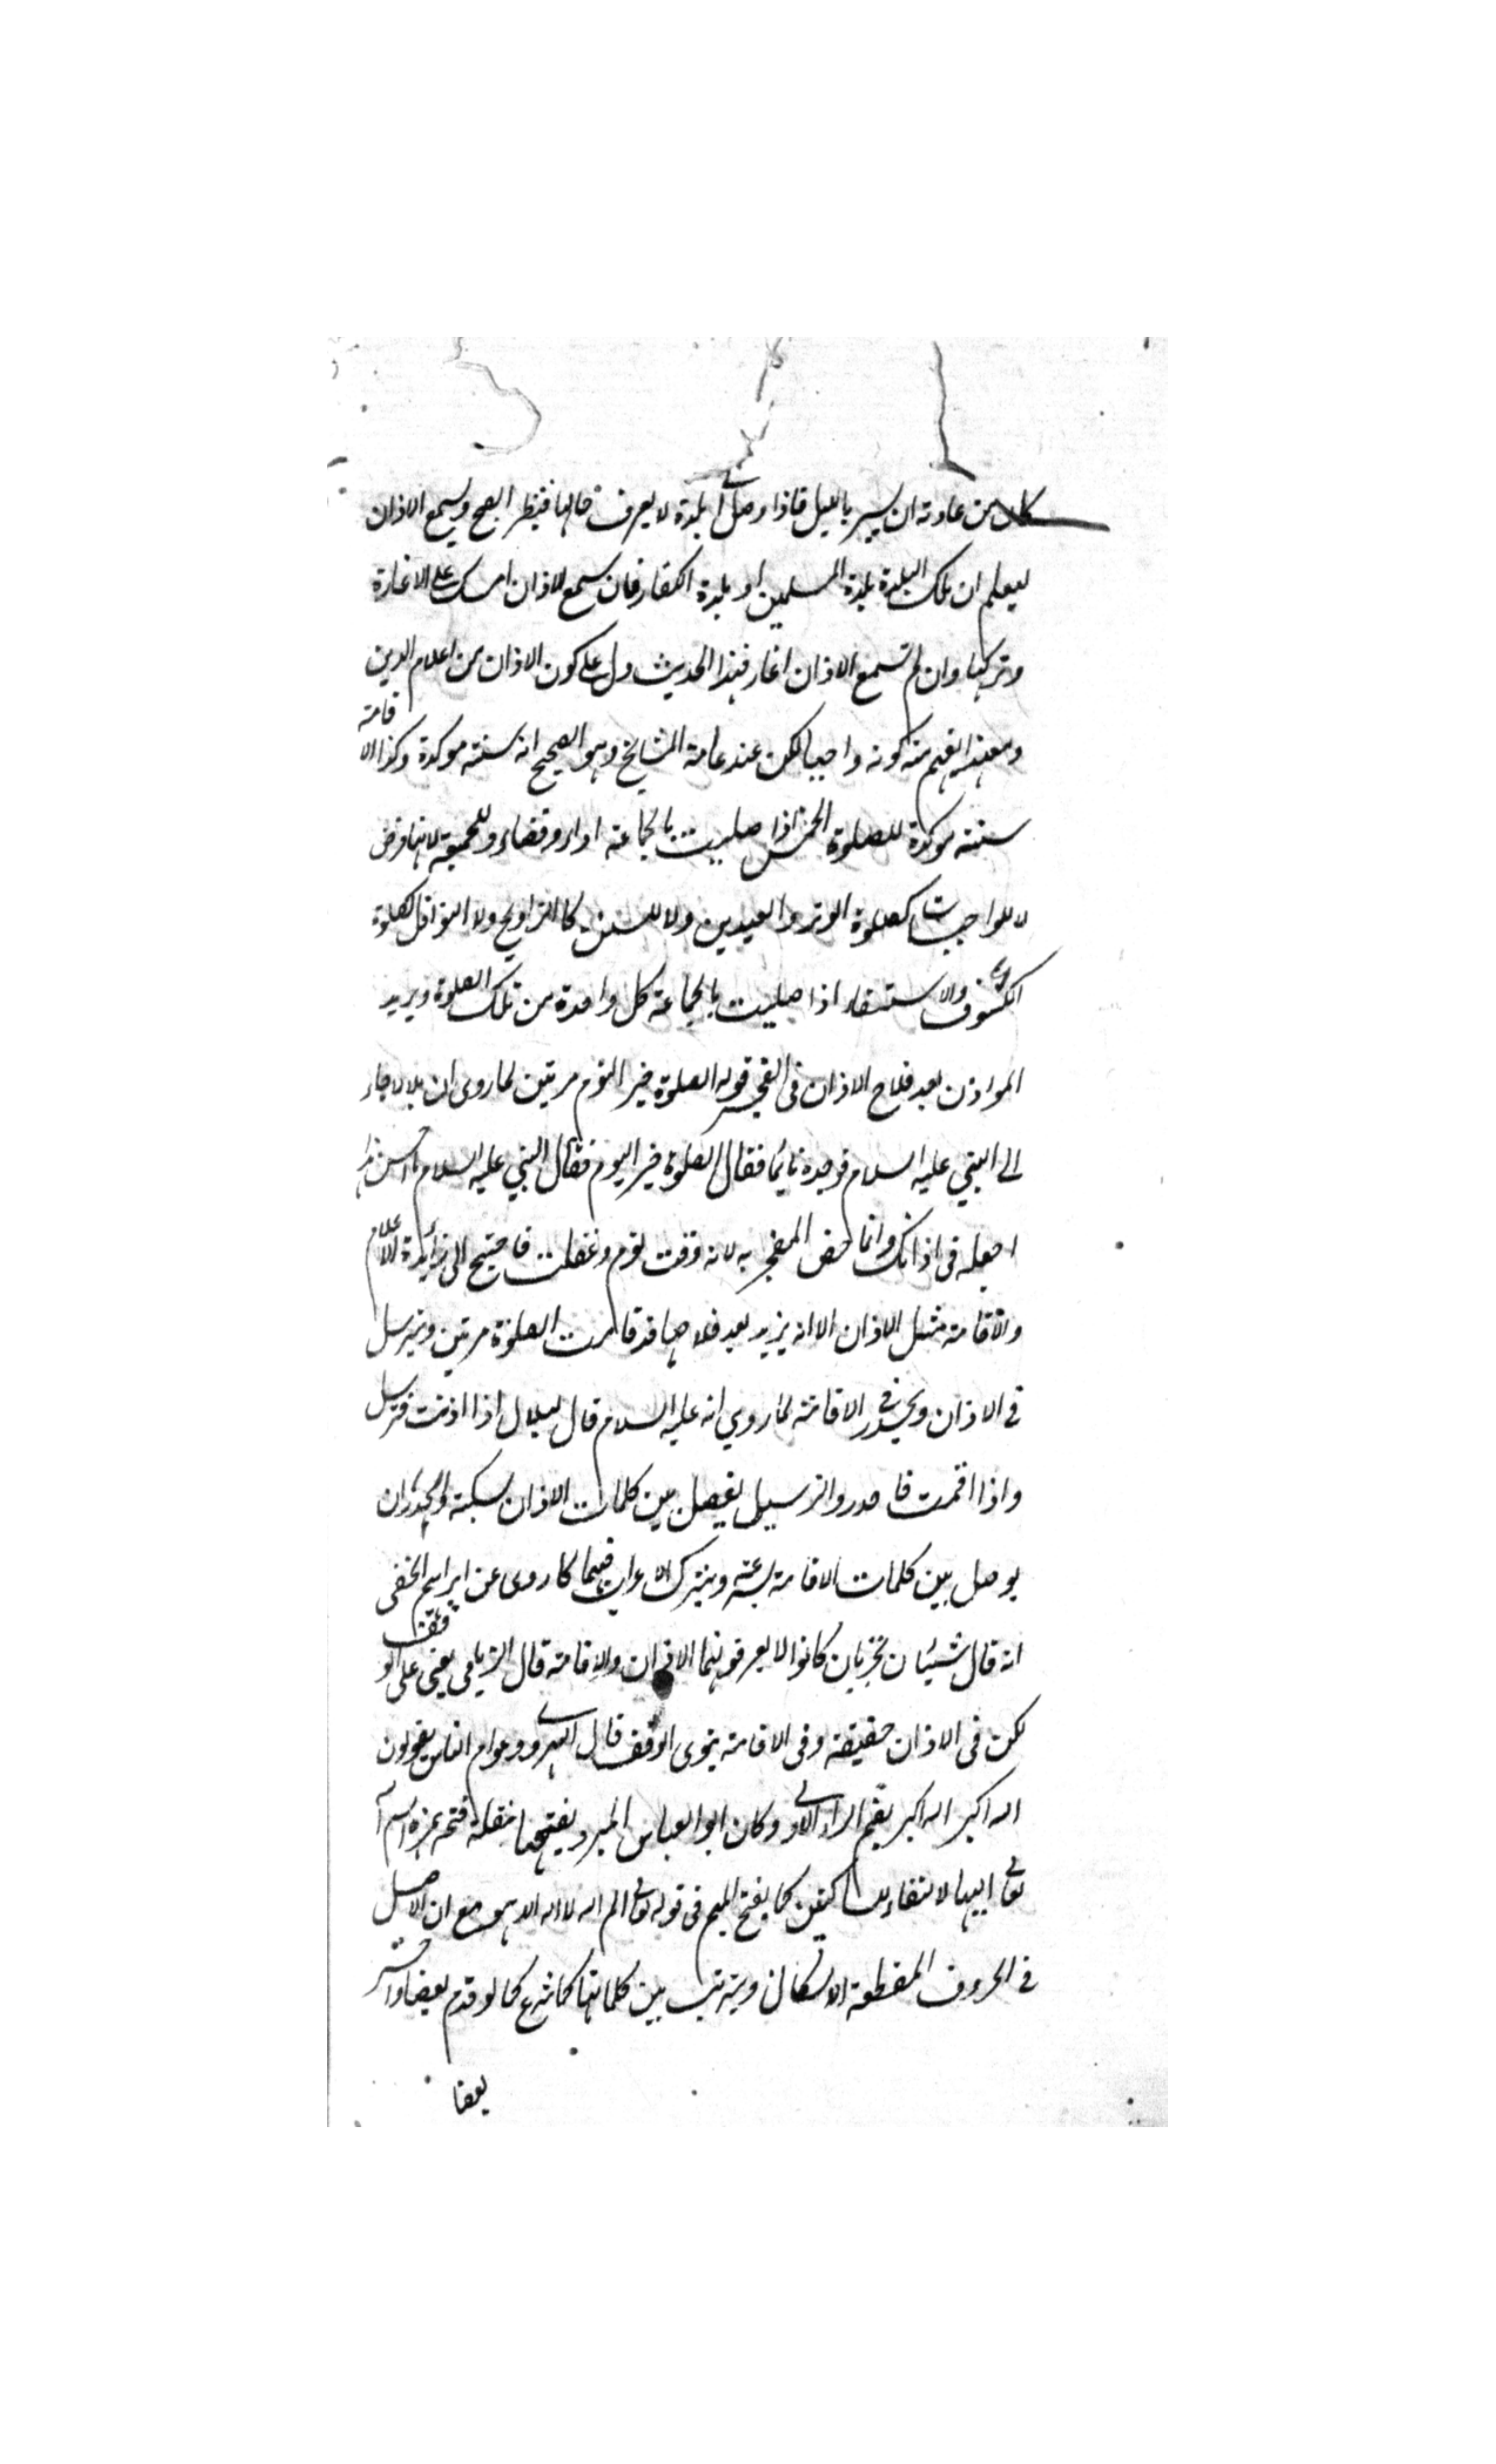 كان من عادته ان يسير بالليل فاذا وصل الى بلدة لا يعرف حالها فينظر الصبح ويسمع الاذان
ليعلم ان تلك البلدة بلدة المسلمين او بلدة الكفار فان سمع الاذان امسك على الاغارة
وتركها وان لم تسمع الاذان اغار فهذا الحديث دل على كون الاذان من اعلام الدين
وبعضهم منه كونه واجبا لكن عند عامة المشايخ وهو الصحيح انه سنته موكدة وكذا الاقامته
سنته موكدة للصلوة الخمس اذا صليت بالجماعته اداء وقضاء وللجمعة لانها فرض
لا للواجبات كصلوة الوتر والعيدين ولا للسنن كالتراويح ولا النوافل كصلوة
الكسوف والاستسقاء اذا صليت بالجماعته كل واحدة من تلك الصلوة ويزيد
الموذن بعد فلاح الاذان فى الفجر قوله الصلوة خير النوم مرتين لما روى ان بلالا جاء
الى النبي عليه السلام فوجده نايما فقال الصلوة خير النوم فقال النبي عليه السلام ما احسن هذا
اجعله فى اذانك وانما خص الفجر به لانه وقت نوم وغفلت فاحتيج الى زايدة الاعلام
والاقامته مثل الاذان الا انه يزيد بعد فلاحها قد قامت الصلوة مرتين ويترسل
فى الاذان ويحدر فى الاقامته لما روي انه عليه السلام قال لبلال اذا اذنت فترسل
واذا اقمت فاحدر والترسيل يفصل بين كلمات الاذان بسكتة والحدر ان
يوصل بين كلمات الاقامته بسرعته ويترك الاعراب فيهما كما روى عن ابراهيم النخفى
انه قال شيئان يجزمان كانوا لا يعرفونهما الاذان والاقامته قال الزيلعى يعنى على الوقف
لكن فى الاذان حقيقة وفى الاقامته ينوى الوقف قال الهروى وعوام الناس يقولون
الله اكبر الله اكبر بضم الراء الاولى وكان ابو العباس المبرد يفتحها فنقلة فتحه همزة اسم الله
تعالى اليها لالتقاء الساكنين كما يفتح الميم فى قوله تعالى الم الله لا اله الا هو مع ان الاصل
فى الحروف المقطعة الاسكان ويترتب بين كلماتها كما شرع كما لو قدم بعضا واخر
بعضا